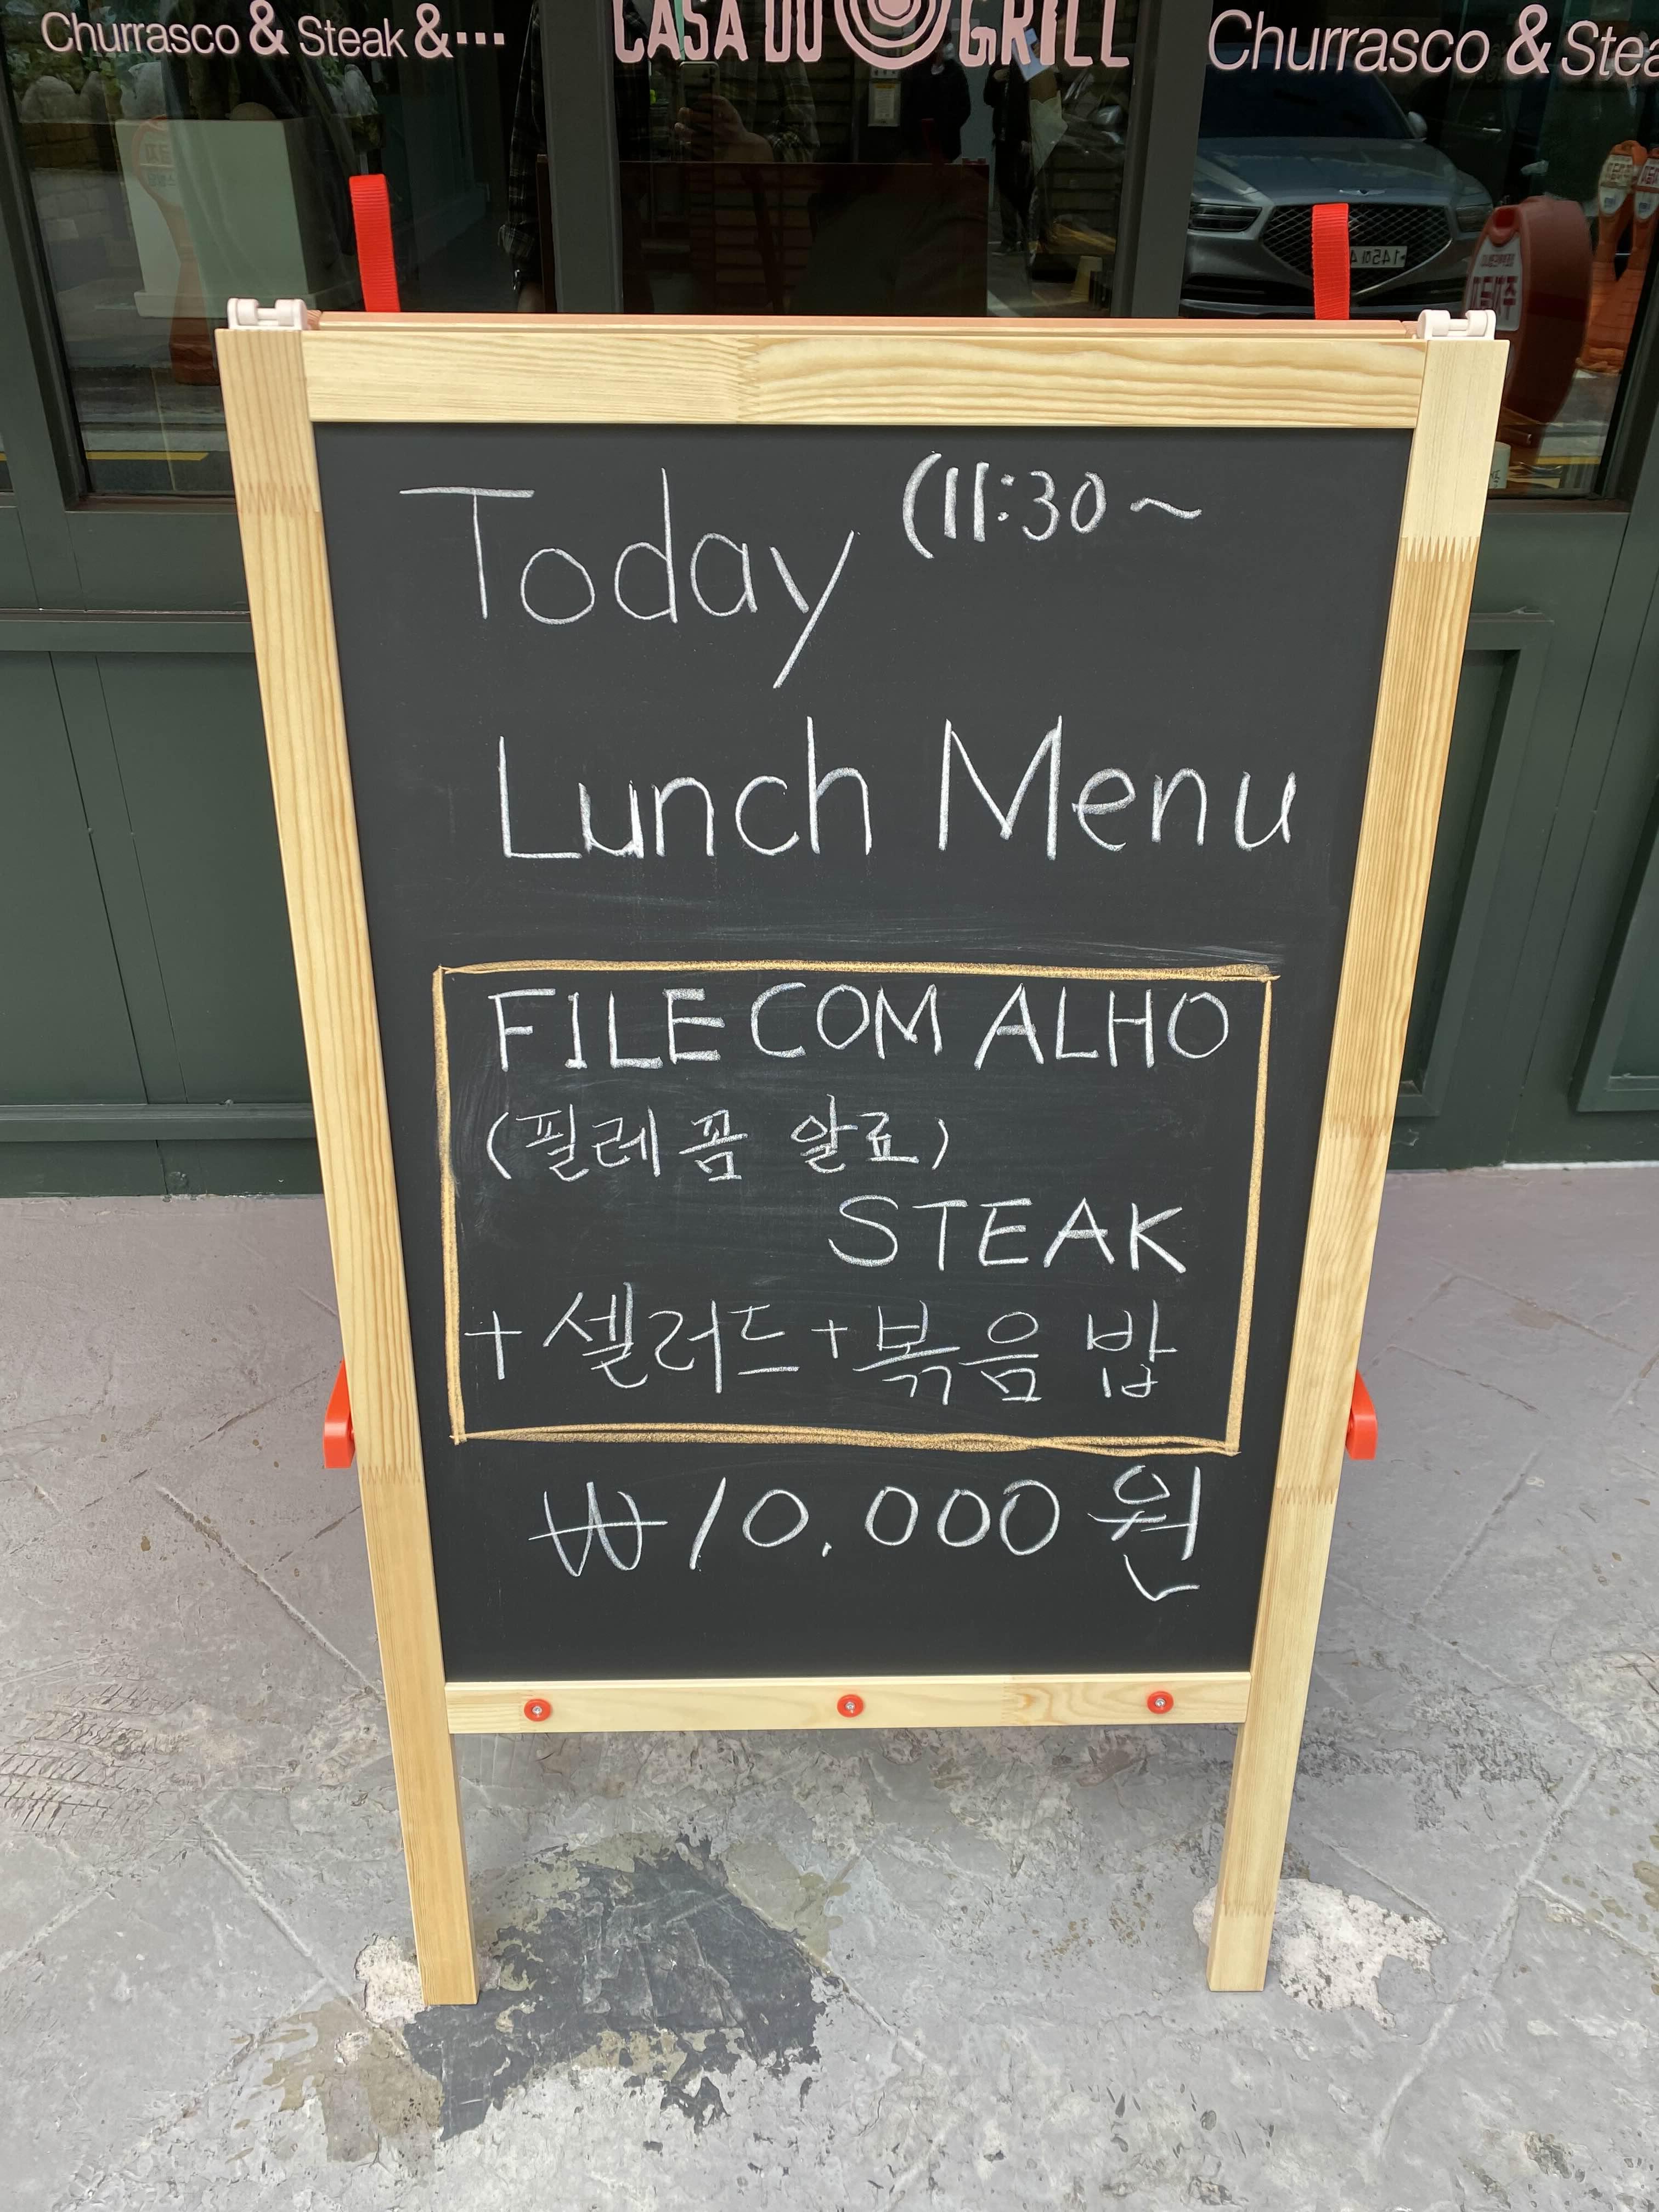 Churrasco & Steak &...
CASA DO GRILL
Churrasco & Stea
Today (11:30~
Lunch Menu
FILE COM ALHO
(필레 꼼 알료)
STEAK
+ 셀러드 + 볶음 밥
₩10.000 원